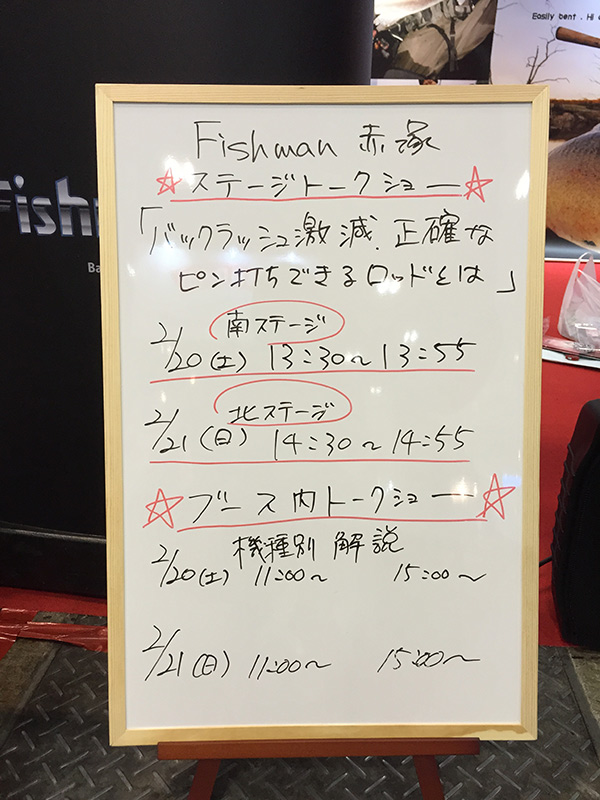 Easily bent . Hi
Fish
Ba
Fishman 赤塚
☆ステージトークショー☆
「バックラッシュ激減.正確な
ピン打ちできるロッドとは」
南ステージ
2/20(土) 13:30〜13:55
北ステージ
2/21(日) 14:30〜14:55
☆ブース内トークショー☆
機種別 解説
2/20(土) 11:00〜 15:00〜
2/21(日) 11:00〜 15:00〜